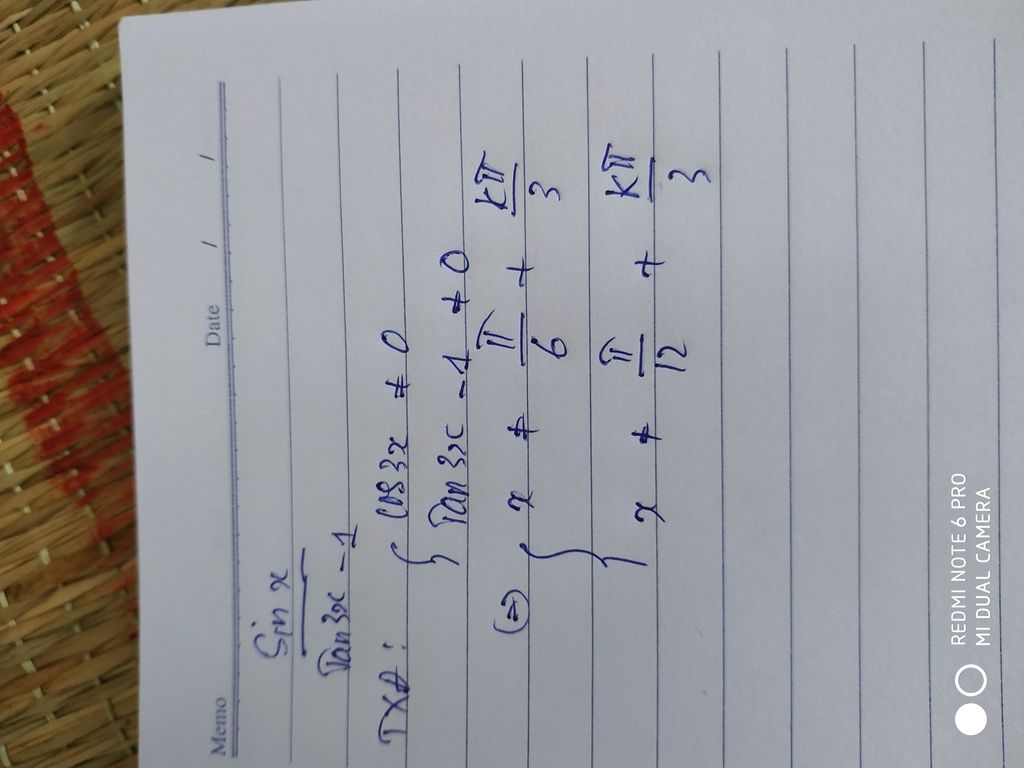 Memo Date / /
Sin x
Tan3x - 1
TXĐ: { cos3x ≠ 0
Tan3x - 1 ≠ 0
(=) { x ≠ π/6 + kπ/3
{ x ≠ π/12 + kπ/3
REDMI NOTE 6 PRO
MI DUAL CAMERA